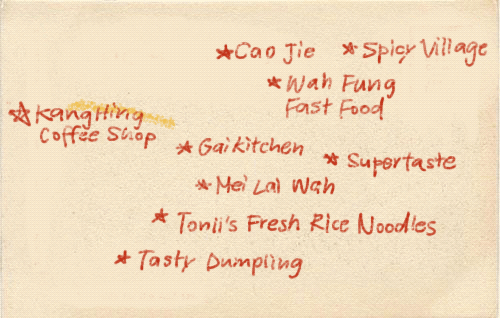 Cao Jie
Spicy Village
Wah Fung
Fast Food
Kang Hing
Coffee Shop
Gai Kitchen
Supertaste
Mei Lai Wah
Tonii's Fresh Rice Noodles
Tasty Dumpling